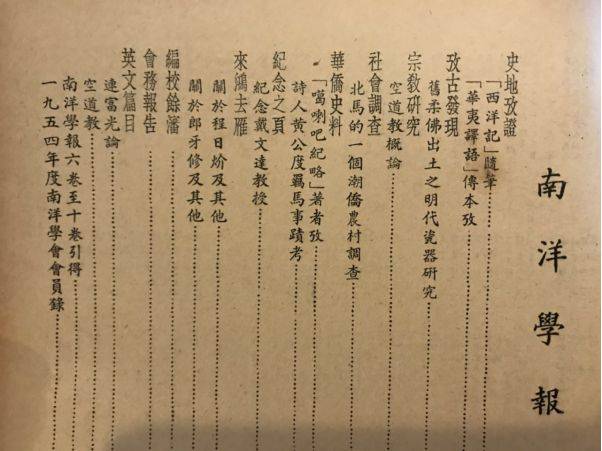 南洋學報
史地攷證
「西洋記」隨筆
「華夷譯語」傳本攷
攷古發現
舊柔佛出土之明代瓷器研究
宗敎硏究
空道教概論
社會調查
北馬的一個潮僑農村調查
華僑史料
「噶喇吧紀略」著者攷
詩人黃公度羈馬事蹟考
紀念之頁
紀念戴文達教授
來鴻去雁
關於程日炌及其他
關於郎牙修及其他
編校餘瀋
會務報告
英文篇目
連富光論
空道教
南洋學報六卷至十卷引得
一九五四年度南洋學會會員錄